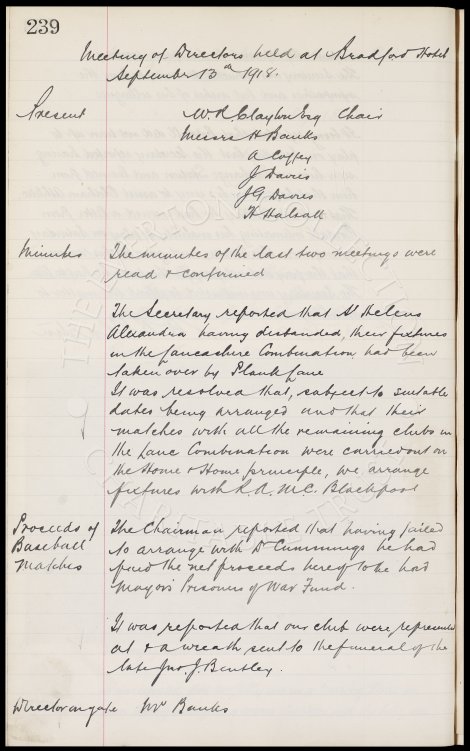 239
Meeting of Directors held at Bradford Hotel
September 13th 1918.
Present W. R. Clayton Esq Chair
Messrs H Banks
A Coffey
J Davies
J G Davies
H Halsall
Minutes The minutes of the last two meetings were
read & confirmed
The Secretary reported that St Helens
Alexandra having disbanded, their fixtures
in the Lancashire Combination had been
taken over by Plank Lane
It was resolved that, subject to suitable
dates being arranged and that their
matches with all the remaining clubs in
the Lanc Combination were carried out on
the Home & Home principle, we arrange
fixtures with R.A.M.C. Blackpool
Proceeds of The Chairman reported that having failed
Baseball to arrange with Dr Cummings he had
Matches paid the net proceeds to the
Mayors Prisoners of War Fund.
It was reported that our club were represented
at & a wreath sent to the funeral of the
late Jno. J. Bentley.
Director on gate Mr Banks
THE EVERTON COLLECTION
CHARITABLE TRUST